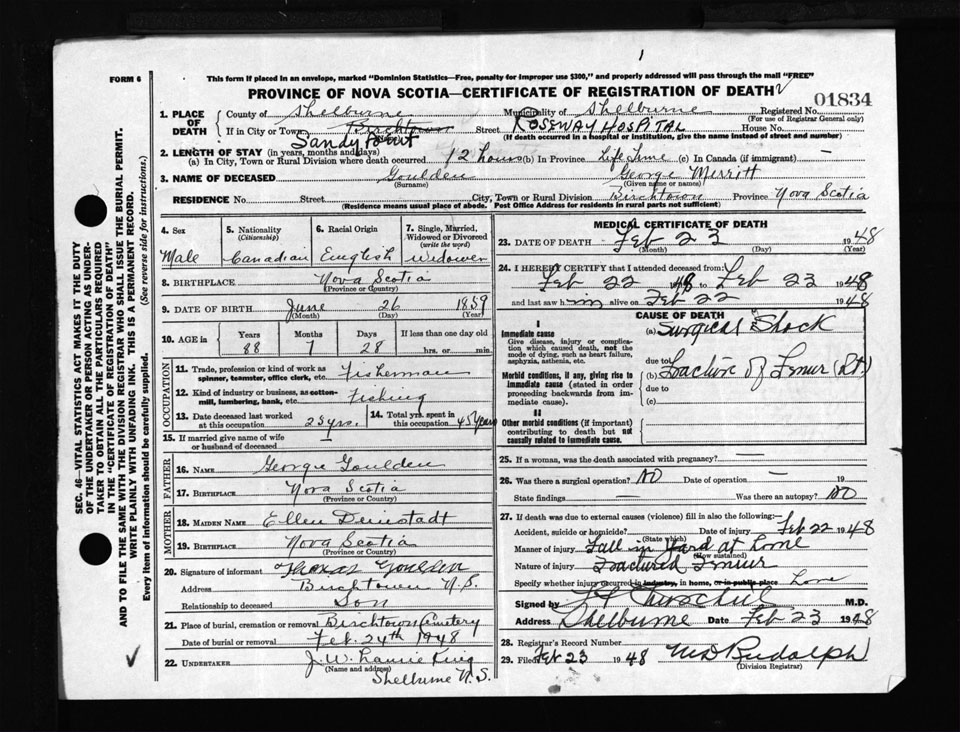 1
FORM 6
This form if placed in an envelope, marked "Dominion Statistics—Free, penalty for improper use $300," and properly addressed will pass through the mail "FREE"
PROVINCE OF NOVA SCOTIA—CERTIFICATE OF REGISTRATION OF DEATH
01834
1. PLACE OF DEATH
County of Shelburne Municipality of Shelburne Registered No.
(For use of Registrar General only)
If in City or Town Birchtown Street Roseway Hospital House No.
Sandy Point
(If death occurred in a hospital or institution, give the name instead of street and number)
2. LENGTH OF STAY (in years, months and days)
(a) In City, Town or Rural Division where death occurred 12 hours (b) In Province Life Time (c) In Canada (if immigrant) —
3. NAME OF DECEASED Goulden George Merritt
(Surname) (Given name or names)
RESIDENCE No. Street City, Town or Rural Division Birchtown Province Nova Scotia
(Residence means usual place of abode. Post Office Address for residents in rural parts not sufficient)
SEC. 46—VITAL STATISTICS ACT MAKES IT THE DUTY
OF THE UNDERTAKER OR PERSON ACTING AS UNDER-
TAKER TO OBTAIN ALL THE PARTICULARS REQUIRED
IN THE "CERTIFICATE OF REGISTRATION OF DEATH"
AND TO FILE THE SAME WITH THE DIVISION REGISTRAR WHO SHALL ISSUE THE BURIAL PERMIT.
WRITE PLAINLY WITH UNFADING INK. THIS IS A PERMANENT RECORD.
Every item of information should be carefully supplied. (See reverse side for instructions.)
4. Sex
Male
5. Nationality
(Citizenship)
Canadian
6. Racial Origin
English
7. Single, Married,
Widowed or Divorced
(write the word)
Widower
8. BIRTHPLACE Nova Scotia
(Province or Country)
9. DATE OF BIRTH June 26 1859
(Month) (Day) (Year)
10. AGE in
Years Months Days If less than one day old
88 7 28 hrs. or min.
OCCUPATION
11. Trade, profession or kind of work as
spinner, teamster, office clerk, etc. Fisherman
12. Kind of industry or business, as cotton-
mill, lumbering, bank, etc. Fishing
13. Date deceased last worked
at this occupation 25 yrs.
14. Total yrs. spent in
this occupation 45 years
15. If married give name of wife
or husband of deceased
FATHER
16. NAME George Goulden
17. BIRTHPLACE Nova Scotia
(Province or Country)
MOTHER
18. MAIDEN NAME Ellen Deinstadt
19. BIRTHPLACE Nova Scotia
(Province or Country)
20. Signature of informant Thomas Goulden
Address Birchtown N.S.
Relationship to deceased Son
21. Place of burial, cremation or removal Birchtown Cemetery
Date of burial or removal Feb. 24th 1948
22. UNDERTAKER J. W. Laurie King
(Name and address)
Shelburne N.S.
MEDICAL CERTIFICATE OF DEATH
23. DATE OF DEATH Feb 23 1948
(Month) (Day) (Year)
24. I HEREBY CERTIFY that I attended deceased from:
Feb 22 1948 to Feb 23 1948
and last saw him alive on Feb 22 1948
CAUSE OF DEATH
I
Immediate cause
Give disease, injury or complica-
tion which caused death, not the
mode of dying, such as heart failure,
asphyxia, asthenia, etc.
(a) Surgical Shock
due to
Morbid conditions, if any, giving rise to
immediate cause (stated in order
proceeding backwards from im-
mediate cause).
Fracture of Femur (Rt.)
due to
(c)
II
Other morbid conditions (if important)
contributing to death but not
causally related to immediate cause.
25. If a woman, was the death associated with pregnancy? —
26. Was there a surgical operation? No Date of operation — 19
State findings — Was there an autopsy? No
27. If death was due to external causes (violence) fill in also the following:—
Accident, suicide or homicide? Date of injury Feb 22 1948
(State which)
Manner of injury Fall in yard at home
(How sustained)
Nature of injury Fractured Femur
Specify whether injury occurred in industry, in home, or in public place
Signed by M.D.
Address Shelburne Date Feb 23 1948
28. Registrar's Record Number
29. Filed Feb 23 1948 M D Rudolph
(Division Registrar)